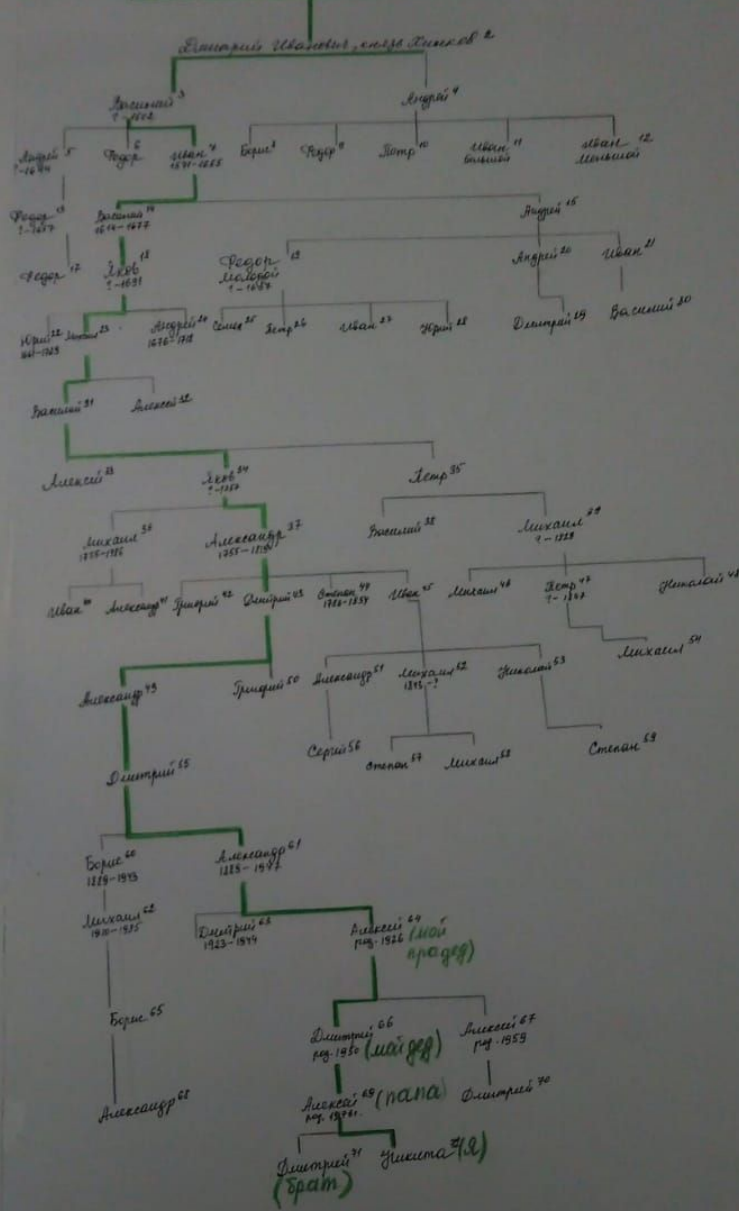 Дмитрий Иванович, князь 2
Василий 3
Андрей 4
Андрей 5
Федор 6
Иван 7
Борис 8
Федор 9
Петр 10
Иван 11
Большой
Иван 12
Меньшой
Федор 13
Василий 14
1614-1677
Андрей 15
Федор 17
Яков 18
?-1691
Федор 19
Молодой
Андрей 20
Иван 21
Юрий 22
23
Андрей 24
1676-1712
Семен 25
Петр 26
Иван 27
Юрий 28
Дмитрий 29
Василий 30
Василий 31
Алексей 32
Алексей 33
Яков 34
Петр 35
Михаил 36
Александр 37
Василий 38
Михаил 39
?-1828
Иван 40
Александр 41
Григорий 42
Дмитрий 43
Степан 44
Иван 45
Михаил 46
Петр 47
?-1847
Николай 48
Александр 49
Григорий 50
Александр 51
Михаил 52
Николай 53
Михаил 54
Дмитрий 55
Сергей 56
Степан 57
Михаил 58
Степан 59
Борис 60
1889-1943
Александр 61
1889-1977
Михаил 62
Дмитрий 63
1923-1944
Алексей 64
род. 1926
(мой
прадед)
Борис 65
Дмитрий 66
род. 1950
(мой дед)
Алексей 67
род. 1959
Александр 68
Алексей 69
(папа)
Дмитрий 70
Дмитрий 71
(брат)
Никита 72
(я)